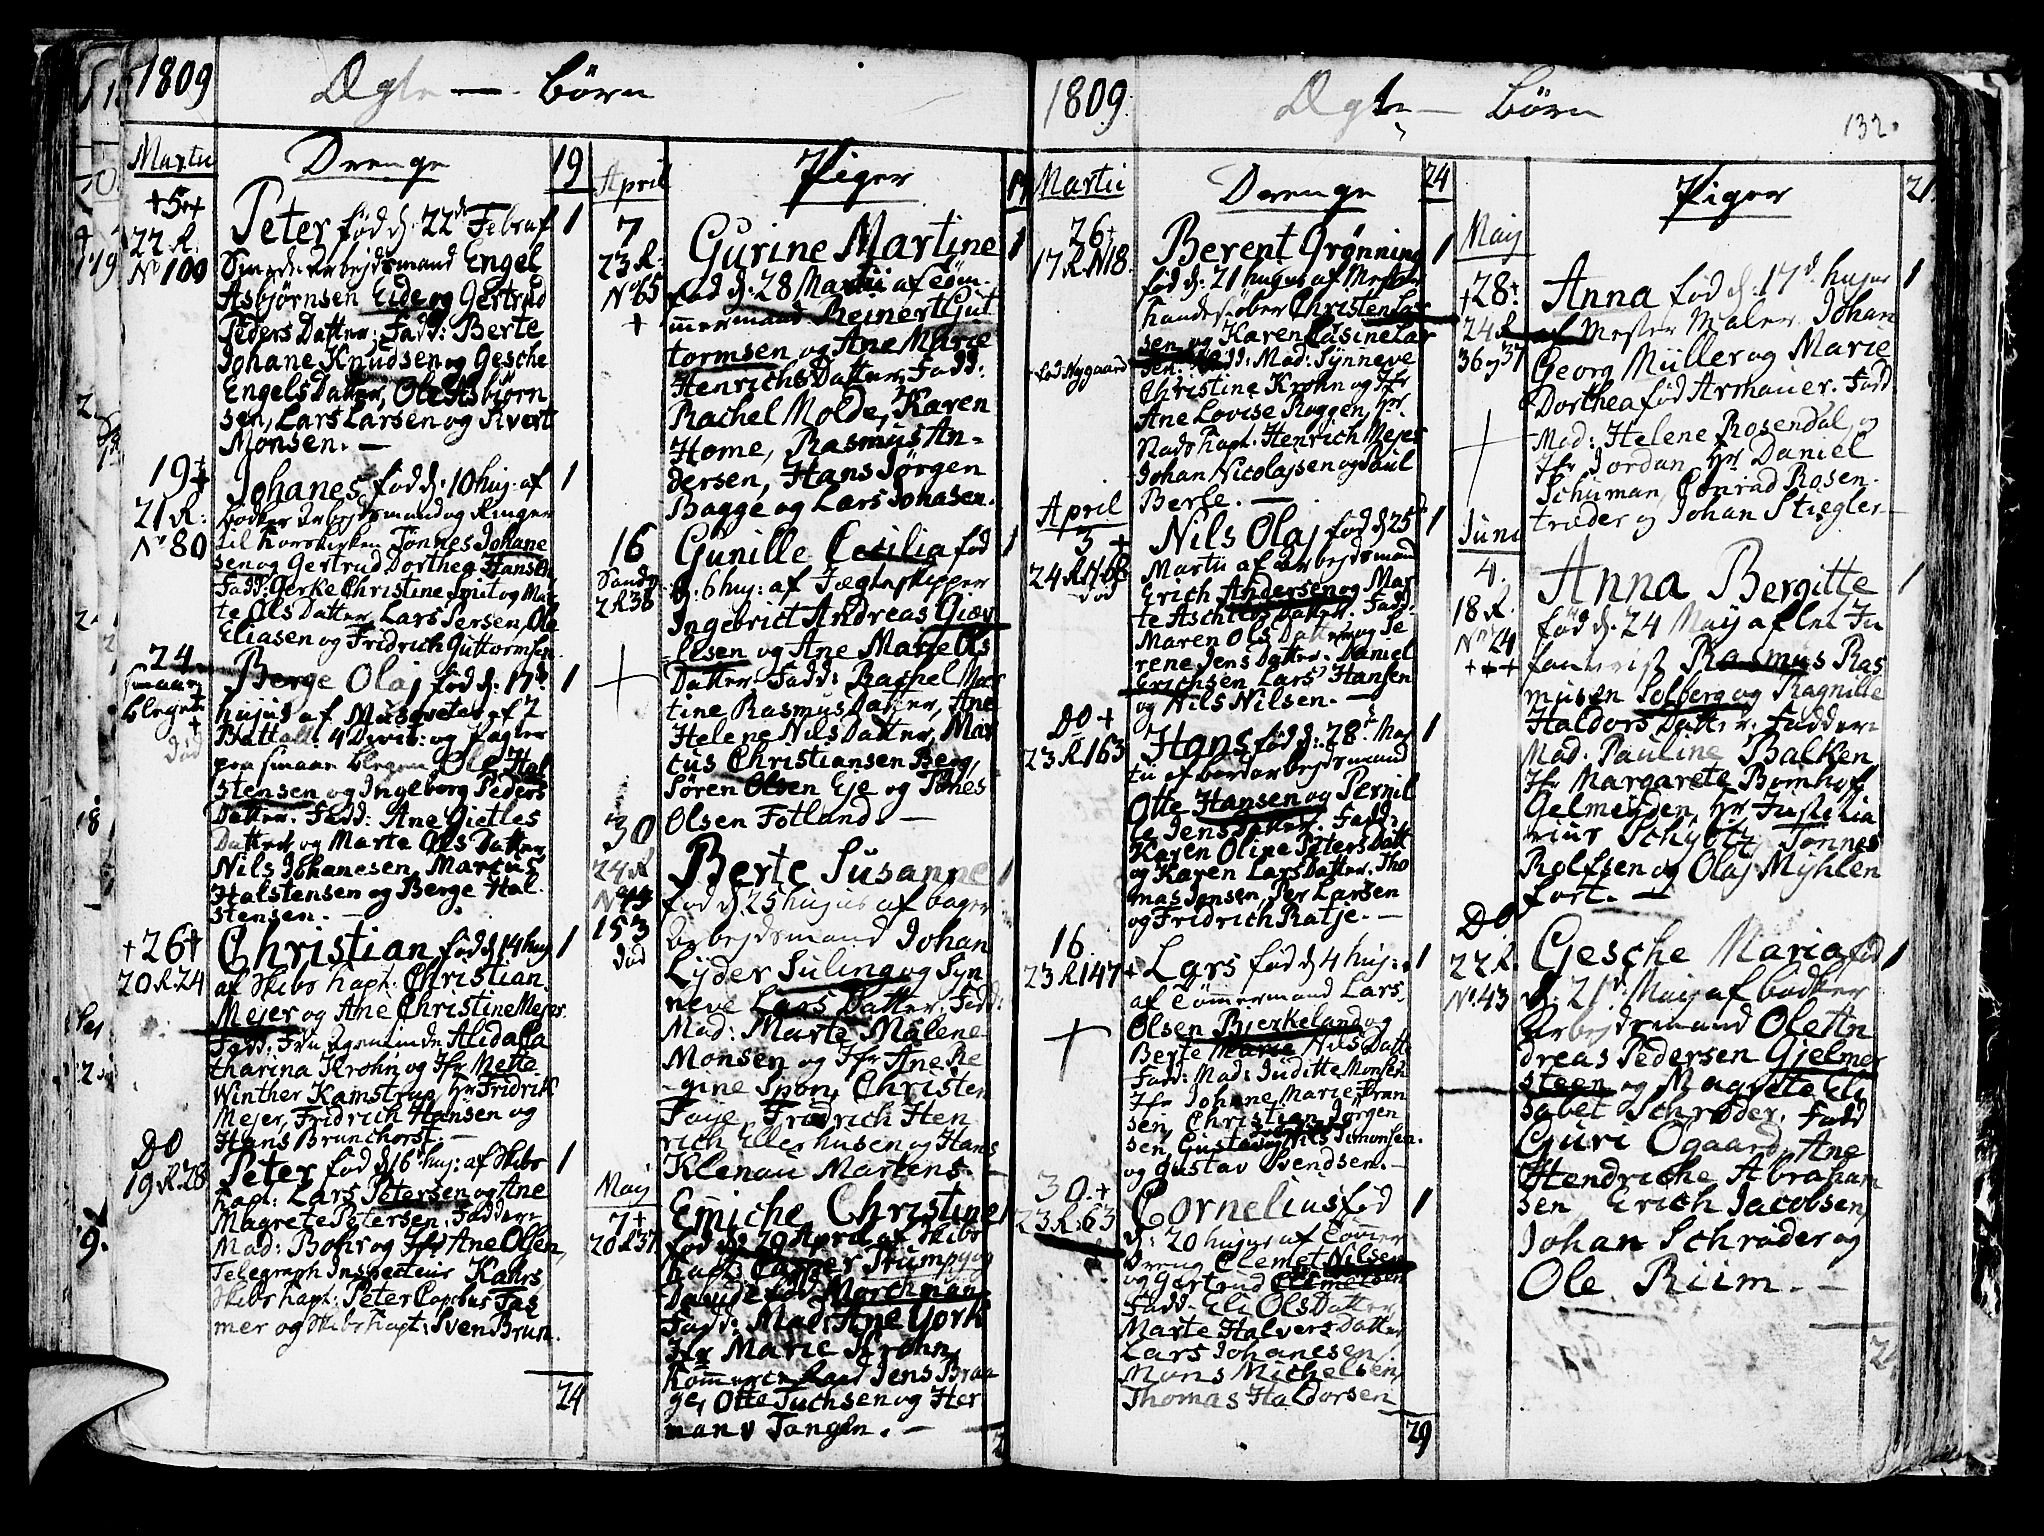 1809
Ægte — Børn
Martii
Drenge
19
+5++
22 R.
No 100
Peter fød d. 22de Febr af
1
Smede Arbejdsmand Engel
Asbjørnsen Eide og Gertrud
Peders Datter. Fadd: Berte
Johane Knudsen og Gesche
Engels Datter, Ole Asbjørn
sen, Lars Larsen og Sivert
Monsen. —
19
21 R.
No 80
Johanes fød d. 10 huj. af
1
Bødker Arbejdsmand og Ringer
til Korskirken Tønnes Johane
sen og Gertrud Dorthea Hansen
Fadd: Gerke Christine Smit og Mar
te Ols Datter, Lars Persen, Ole
Eliasen og Fridrich Guttormsen
24
smaae
Blegen
+
død
Berge Olaj fød d. 17de
1
hujus af Musqvetar af 2
Battall. 4 Divis: og Pagter
paa smaae Blegen Ole Hal
stensen og Ingeborg Peders
Datter. Fadd: Ane Gietles
Datter og Marte Ols Datter
Nils Johanesen, Marcus
Halstensen og Berge Hal
stensen. —
+26+
20 R 24
Christian fød d. 14 huj
1
af Skibs Kapt: Christian
Mejer og Ane Christine Mejer
Fadd: Fru Agentinde Alida Ca
tharina Krohn og Jfr Mette
Winther Kamstrup, Hr Fridrik
Mejer, Fridrich Hansen og
Hans Brunchorst. —
DO
19 R 28
Peter fød d. 16 huj: af Skibs
1
Kapt: Lars Petersen og Ane
Magrete Petersen. Fadder:
Mad: Bohr og Jfr Ane Olsen,
Telegraph Inspecteur Kahrs
Skibs Kapt: Peter Jas
mer og Skibs Kapt: Sven Brun.
24
April
Piger
7
23 R.
No 65
+
Gurine Martine
1
fød d. 28 Martii af Tøm
mermand Reinert Gut
tormsen og Ane Marie
Henrichs Datter. Fadd:
Rachel Molde, Karen
Home, Rasmus An-
dersen, Hans Jørgen
Bagge og Lars Johasen.
16
Sandv
2 R 38
Gunille Cecilia fød
1
d. 6 huj: af Jægteskipper
Ingebrict Andreas Giæv
Elsen og Ane Marie Ols
Datter. Fadd: Rachel Mar
tine Rasmus Datter, Ane
Helene Nils Datter, Mar
cus Christiansen Berg,
Søren Olsen Eje og Tønes
Olsen Fotland. —
30
24 R
153
død
Berte Susanne
1
fød d. 25 hujus af Bager
Arbejdsmand Johan
Lyder Suling og Syn
neve Lars Datter. Fadd:
Mad: Marte Malene
Monsen og Jfr Ane Re
gine Spon, Christen
Faye, Fridrich Hen
rich Ellerhusen og Hans
Klenau Martens. —
Maij
7+
20 R 37
Emiche Christine
1
fød d. 29 April af Skibs
Kapt: Casper Stump og
Davide fød Morchman
Fadd: Mad: Ane York
Jfr Marie Krohn,
Kommerce Raad Jens Braa
ge, Otte Tuchsen og Her
man v Tangen. —
1809.
Ægte — Børn
132.
Martii
Drenge
24
26+
17 R N18.
Lad: Nygaard
Berent Grønning
1
fød d. 21 hujus af Mester
Handeskøber Christen Lar
sen og Karen Casine Lar
sen. Fadd: Mad: Synneve
Christine Krohn og Jfr
Ane Lovise Roggen, Hr
Stads Kapt. Henrich Mejer
Johan Nicolajsen og Poul
Berle. —
April
3 +
24 R N 68
død
Nils Olaj fød d. 25de
1
Martii af Arbejdsmand
Erich Andersen og Mar
te Aschiers Datter. Fadd:
Maren Ols Datter og Se
rene Jens Datter. Daniel
Erichsen Lars Hansen
og Nils Nilsen. —
DO +
23 R 163
Hans fød d. 28de Mar
1
tii af Bordarbejdsmand
Otte Hansen og Pernil
le Jens Datter. Fadd:
Karen Oline Peters Datt
og Karen Lars Datter. Tho
mas Jensen, Per Larsen
og Fridrich Ratje. —
16
23 R 147
Lars fød d. 4 huj:
1
af Tømmermand Lars
Olsen Bjerkeland og
Berte Maria Nils Datt
Fadd: Mad: Juditte Monsen
Jfr Johane Marie Fran
sen, Christian Jørgen
sen, Gustav og Nils Simonsen.
og Gustav Svendsen. —
30 +
23 R: 63
Cornelius fød
1
d. 20 hujus af Tømer
Dreng Clemet Nilsen
og Gertrud Clemetsen
Fadd. Eli Ols Datter
Marte Halvers Datter
Lars Johanesen,
Mons Michelsen,
Thomas Haldorsen
29
Piger
21
Maij
+28+
24 R
36 og 37
Anna fød d. 17de hujus
1
af Mester Maler Johan
Georg Müller og Marie
Dorthea fød Armauer. Fadd:
Mad: Helene Rosendal, og
Jfr Jordan, Hr Daniel
Schuman, Conrad Rosen
træder og Johan Stiegler —
Juni
4.
18 R.
No 24
+++
Anna Bergitte
1
fød d. 24 Maij af Lut In
fanterist Rasmus Ras
musen Solberg og Ragnille
Haldors Datter. Fadder:
Mad: Pauline Balken
Jfr Margarete Bomhof
Gelmeyden, Hr Justitia
rius Schybtz, Tønnes
Rolfsen og Olaj Myhlen
fort. —
DO
22 R.
No. 43
Gesche Maria fød
1
d. 21de Maij af Bødker
Arbejdsmand Ole An
dreas Pedersen Gjelmer
steen og Magreta Eli
sabet Schrøder. Fadd
Guri Ogaard, Ane
Hendriche Abraham
sen Erich Jacobsen,
Johan Schrøder og
Ole Riim. —